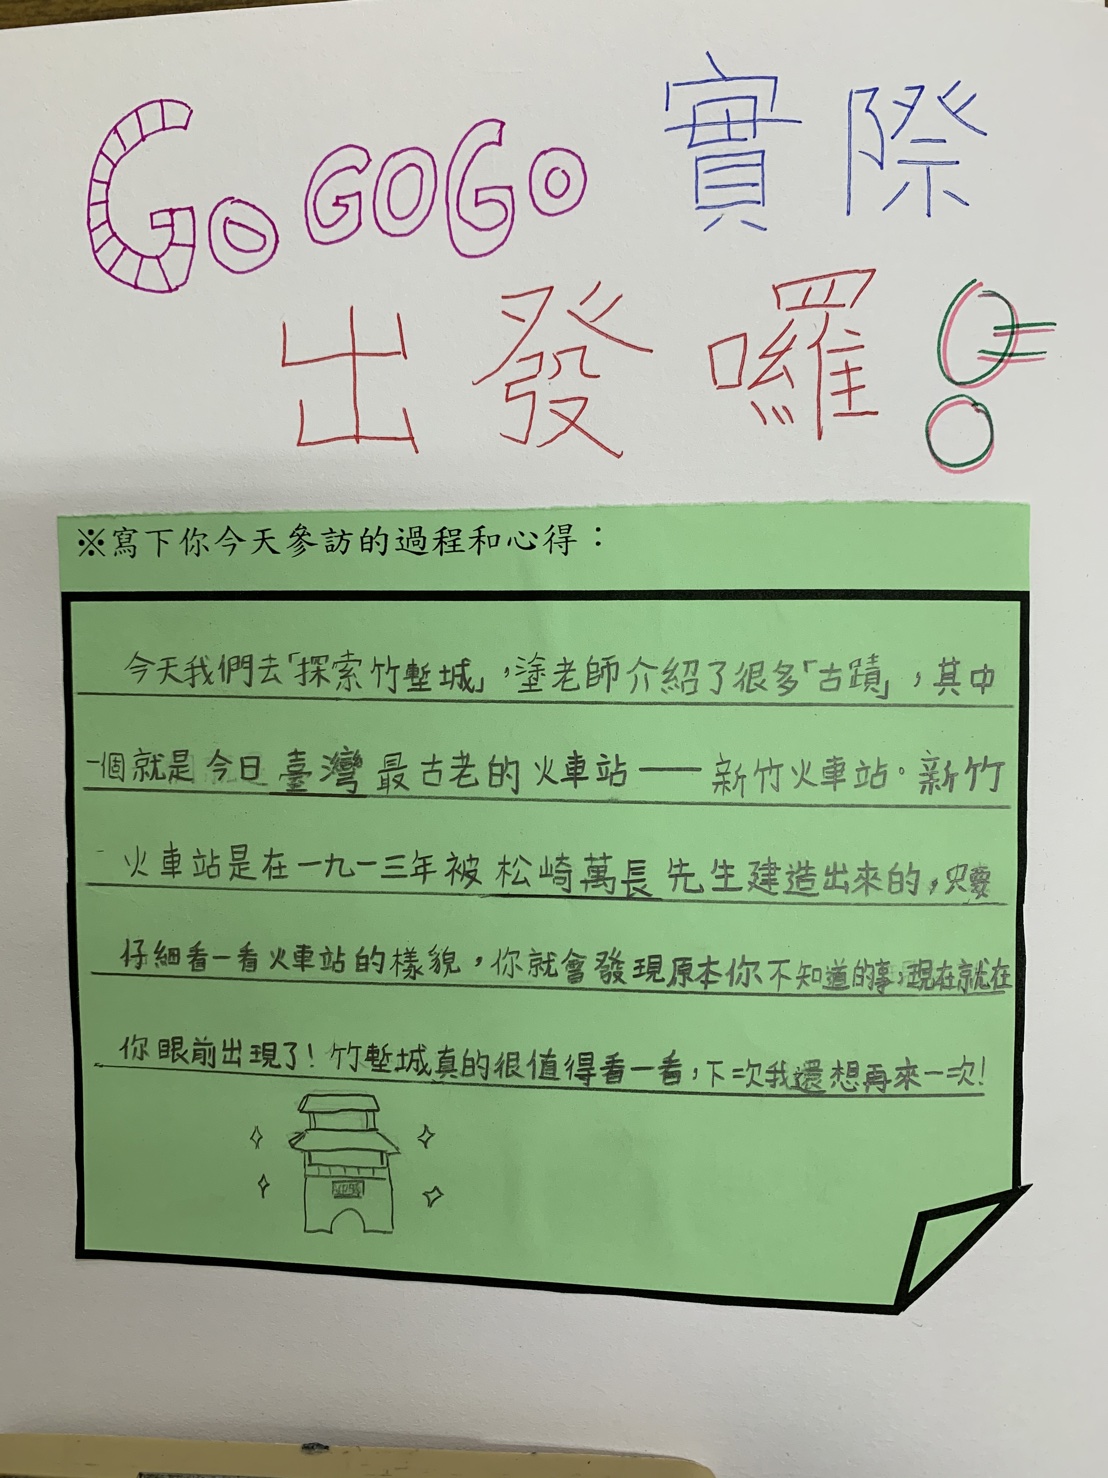 GoGOGo 實際
出發囉!
※寫下你今天參訪的過程和心得：
今天我們去「探索竹塹城」，塗老師介紹了很多「古蹟」，其中
一個就是今日臺灣最古老的火車站——新竹火車站。新竹
火車站是在一九一三年被松崎萬長先生建造出來的，只要
仔細看一看火車站的樣貌，你就會發現原本你不知道的事，現在就在
你眼前出現了！竹塹城真的很值得看一看，下次我還想再來一次！